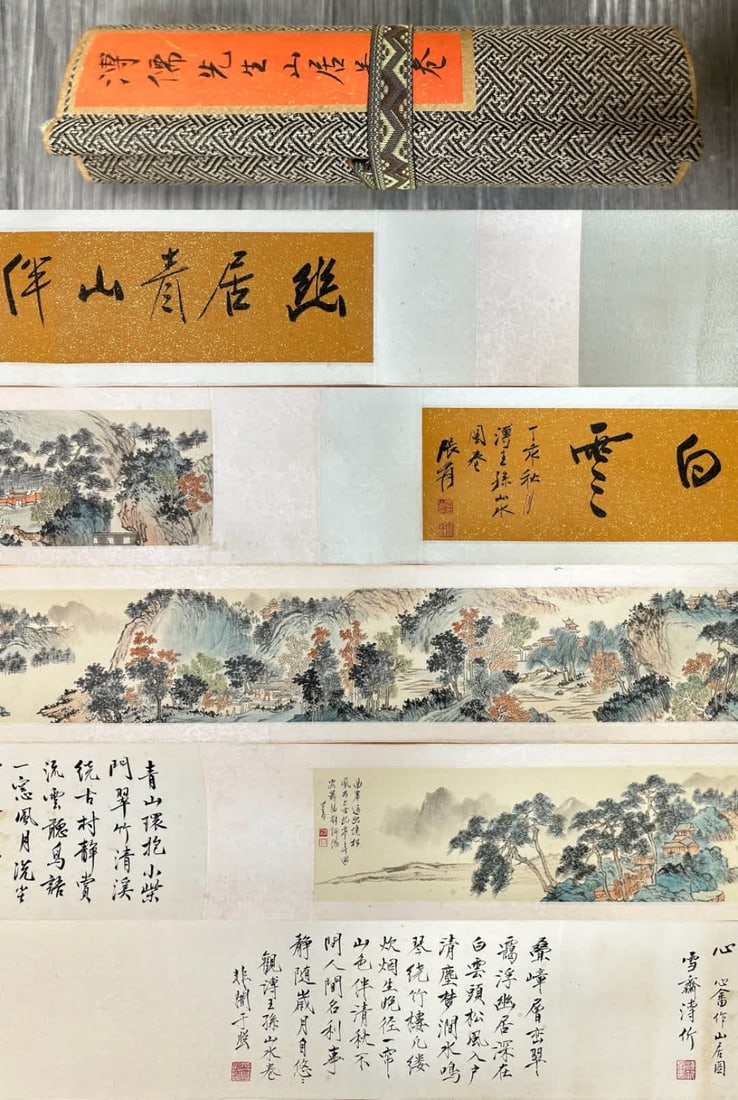 溥儒先生山居卷
幽居青山伴
白雲
丁亥秋月
溥王孫山水
圖卷
張爰
青山環抱小柴
門翠竹清溪
繞古村静賞
流雲聽鳥語
一窓風月洗尘
心 心畬作山居圖
雪齋溥伒
叠嶂層峦翠
靄浮幽居深在
白雲頭松風入户
清塵梦澗水鳴
琴绕竹樓几缕
炊烟生晚径一帘
山色伴清秋不
問人間名利事
静随嵗月自悠〻
觀溥王孫山水卷
非闇于照